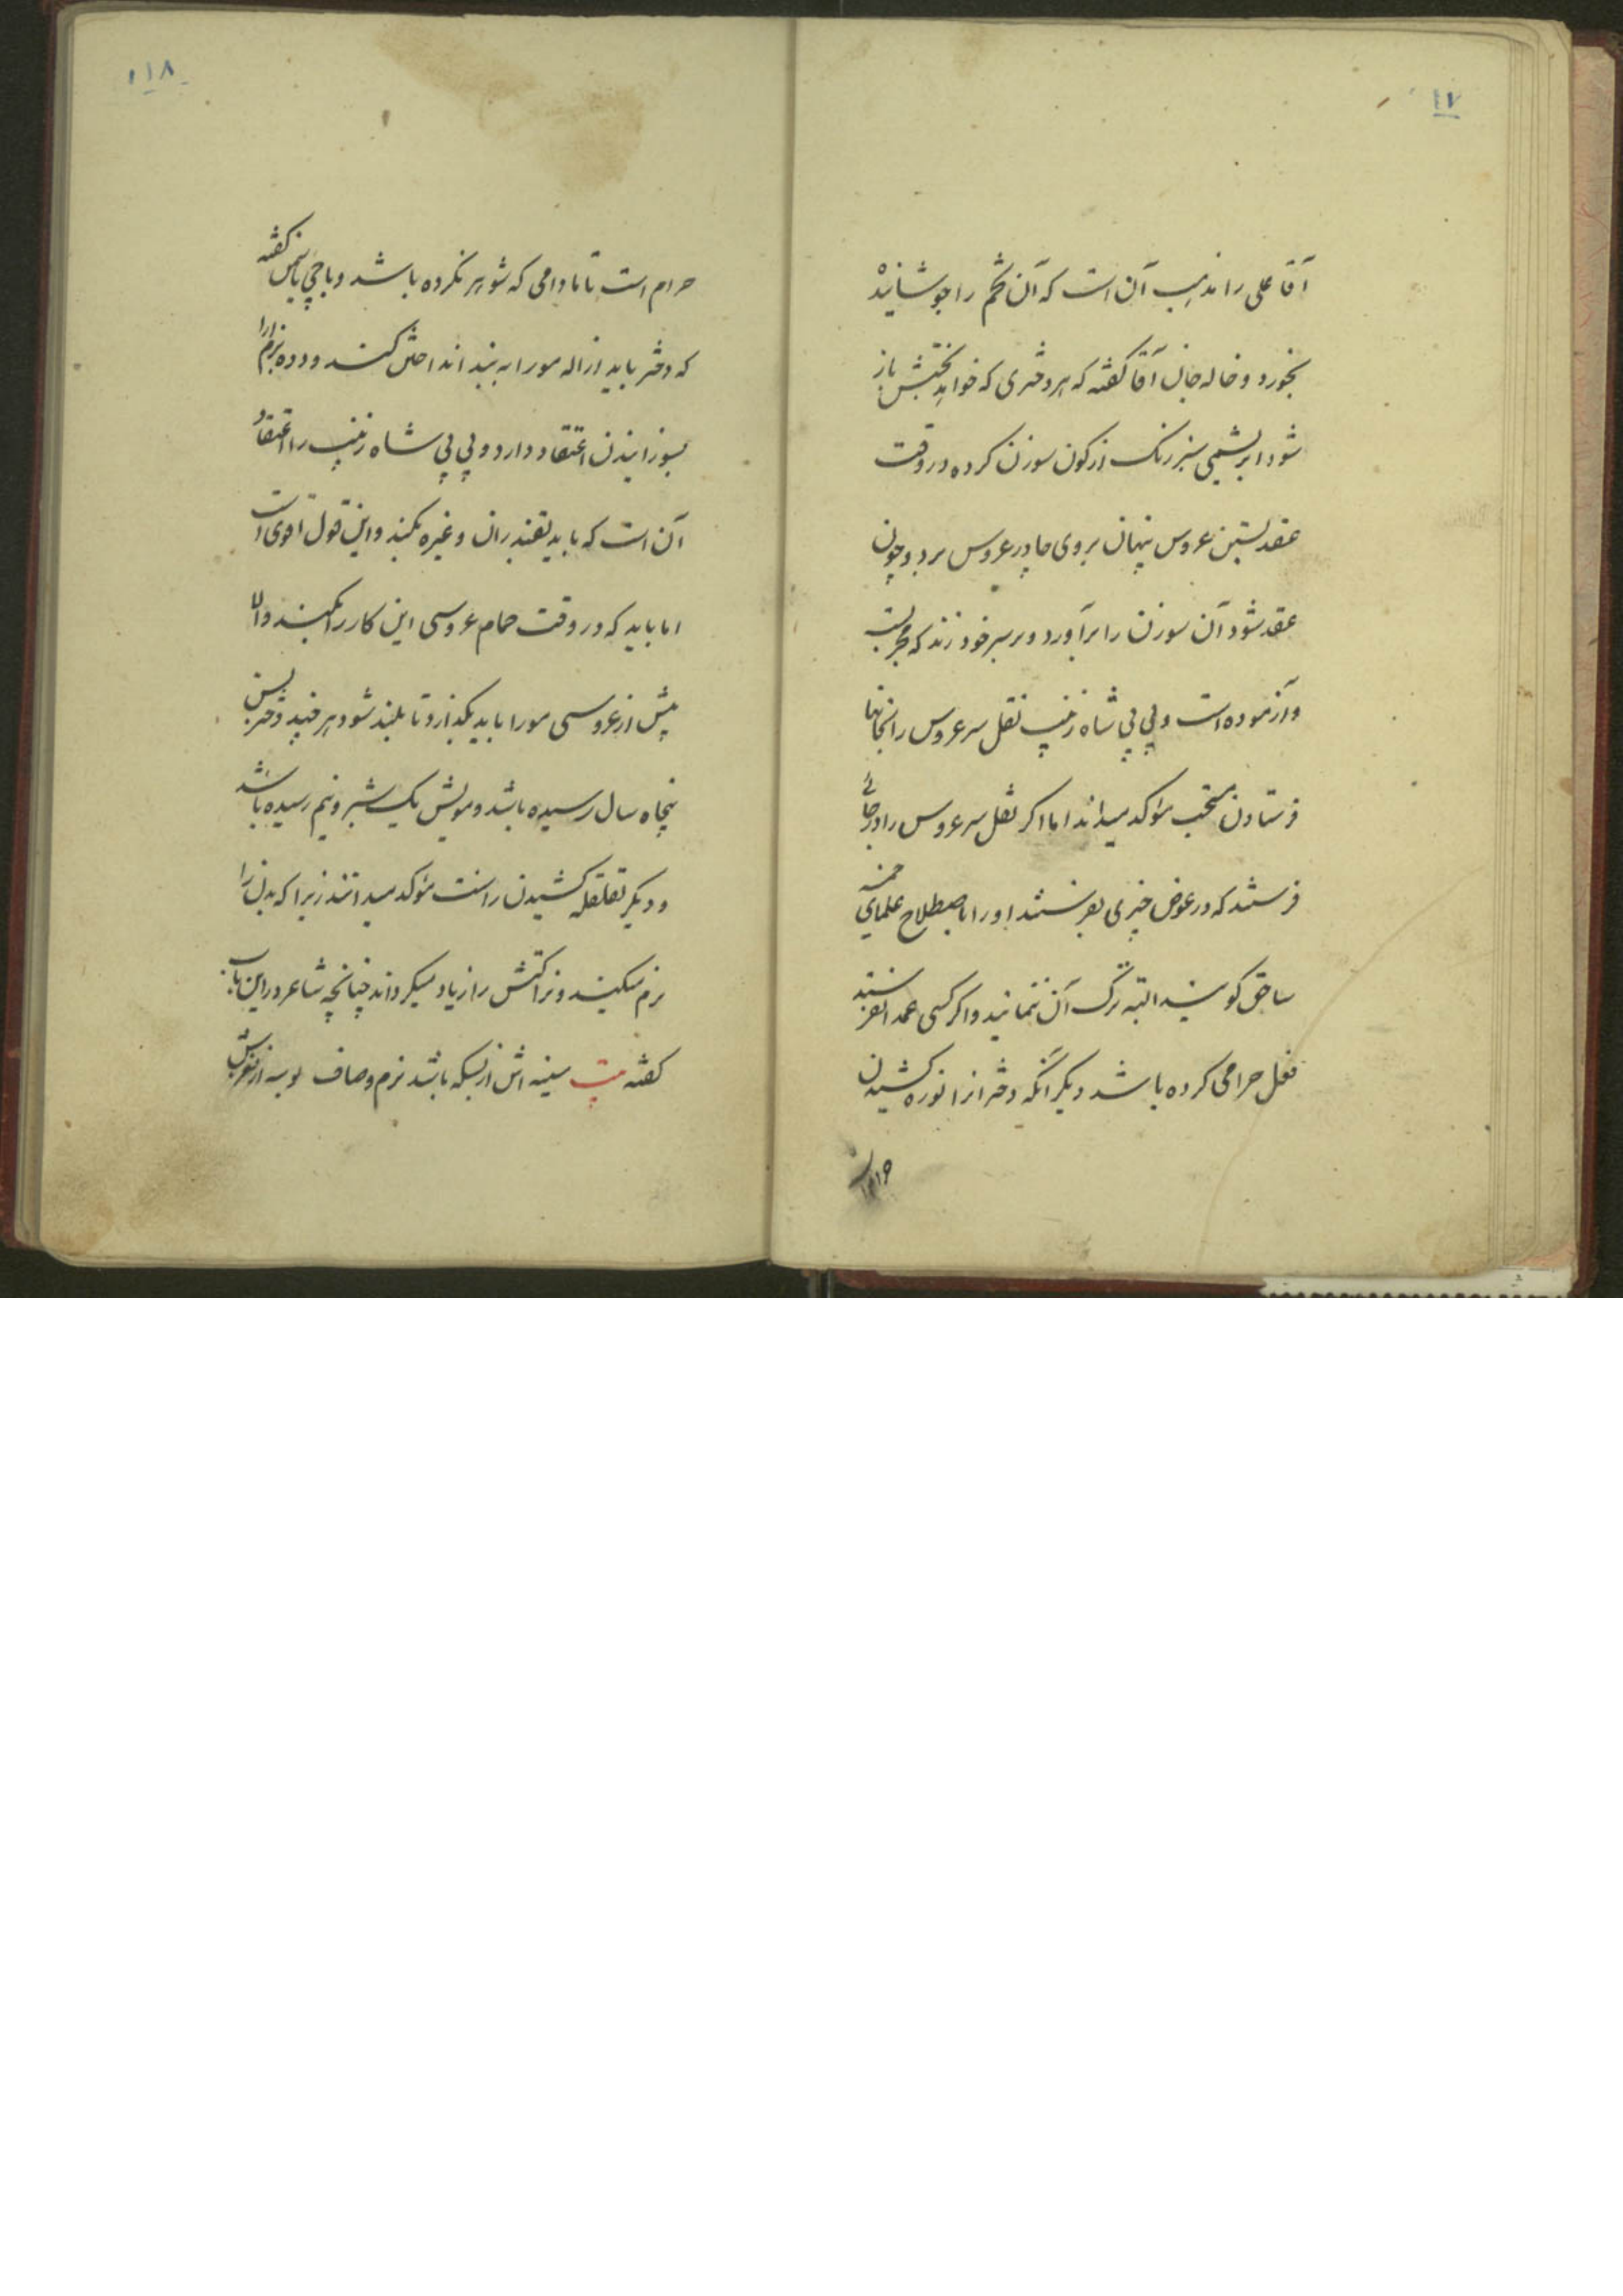 ۱۷
آقا علی را مذهب آن است که آن تخم را جوشانیده
بخورد و خاله جان آقا گفته که هر دختری که خواهد بختش باز
شود ابریشمی سبز رنگ از کون سوزن کرده در وقت
عقد بستن عروس پنهان بروی چادر عروس برد و چون
عقد شود آن سوزن را برآورد و بر سر خود زند که مجربست
و آزموده است و بی بی شاه زینب نقل سر عروس را بخانها
فرستادن مستحب مؤکد میداند اما اگر نقل سر عروس را در جائی
فرستند که در عوض چیزی نفرستند او را باصطلاح علمای خمسه
ساحق کویند البته ترک آن ننمانید و اکر کسی عمدا نفرستد
فعل حرامی کرده باشد دیکر آنکه دخترانرا نوره کشیدن
۱۱۸
حرام است تا مادامی که شوهر نکرده باشد و باجی یاسمن گفته
که دختر باید ازاله مو را به بند انداختن کند و دده بزم آرا
بسوزانیدن اعتقاد دارد و بی بی شاه زینب را اعتقاد
آن است که باید بقند ران و غیره بکنند و این قول اقوی است
اما باید که در وقت حمام عروسی این کار را بکنند والا
پیش از عروسی مو را باید بگذارد تا بلند شود هر چند دختر بسن
پنجاه سال رسیده باشد و مویش یک شبر و نیم رسیده باشد
و دیکر تقلقله کشیدن را سنت مؤکد میدانند زیرا که بدن را
نرم میکند و نزاکتش را زیاد میکرداند چنانچه شاعر در این باب
کفته بیت سینه اش از بسکه باشد نرم و صاف بوسه از